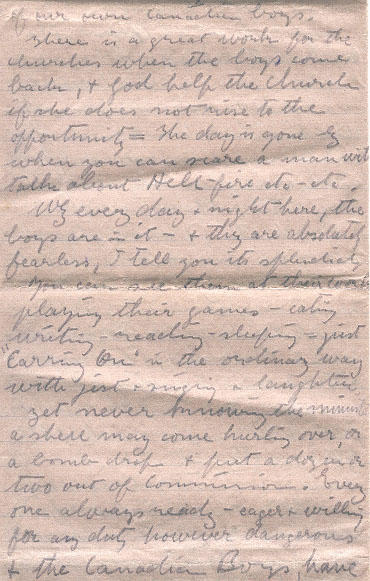 of our own Canadian boys.
There is a great work for the
churches when the boys come
back, & God help the Church
if she does not rise to the
opportunity = The day is gone by
when you can scare a man with
talk about Hell-fire etc - etc.
Why every day & night here, the
boys are in it - & they are absolutely
fearless, I tell you its splendid,
You can see them at their work
playing their games - eating
writing - reading - sleeping - just
"Carrying On" in the ordinary way
with jest & singing & laughter
yet never knowing the minute
a shell may come hurling over, or
a bomb drop & put a dozen or
two out of Commission. Every
one always ready - eager & willing
for any duty however dangerous
& the Canadian Boys have